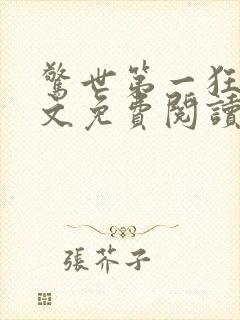 驚世第一狂
文免費閱讀
張芥子